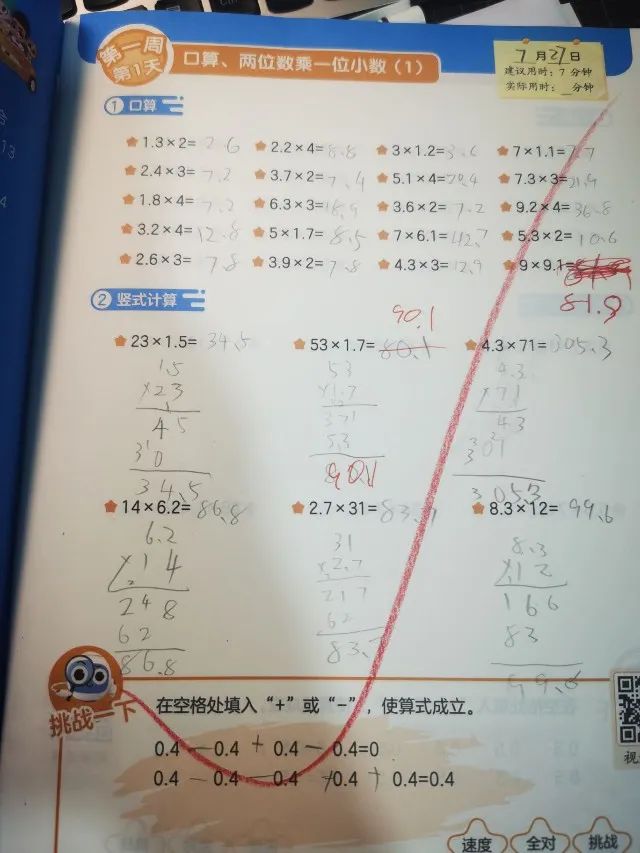 第一周
第1天
口算、两位数乘一位小数（1）
7月27日
建议用时：7 分钟
实际用时：__分钟
1 口算
1.3×2=2.6 2.2×4=8.8 3×1.2=3.6 7×1.1=7.7
2.4×3=7.2 3.7×2=7.4 5.1×4=20.4 7.3×3=21.9
1.8×4=7.2 6.3×3=18.9 3.6×2=7.2 9.2×4=36.8
3.2×4=12.8 5×1.7=8.5 7×6.1=42.7 5.3×2=10.6
2.6×3=7.8 3.9×2=7.8 4.3×3=12.9 9×9.1=
81.9
2 竖式计算
90.1
23×1.5=34.5 53×1.7=80.1 4.3×71=305.3
1.5 53 4.3
×23 ×1.7 ×71
45 371 43
30 53 301
34.5 90.1 305.3
14×6.2=86.8 2.7×31=83.7 8.3×12=99.6
6.2 31 8.3
×14 ×2.7 ×12
248 217 166
62 62 83
86.8 83.7 99.6
挑战一下
在空格处填入“+”或“-”，使算式成立。
0.4 - 0.4 + 0.4 - 0.4=0
0.4 - 0.4 - 0.4 + 0.4 + 0.4=0.4
速度 全对 挑战